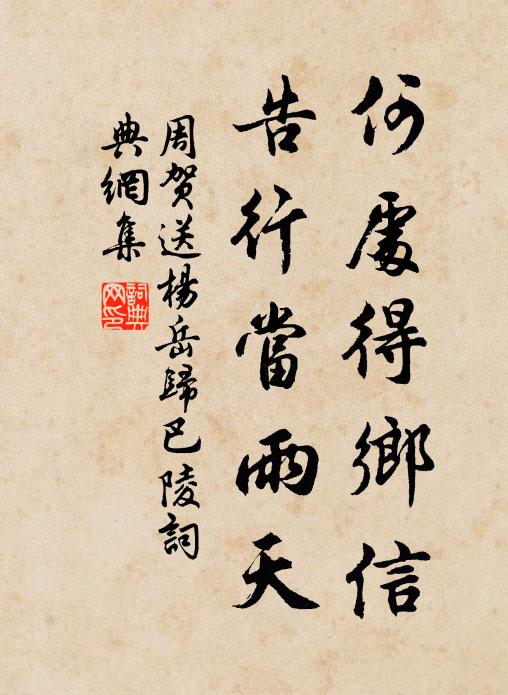 何處得鄉信
告行當雨天
周贺送楊岳歸巴陵詞
典網集
詞典
网印